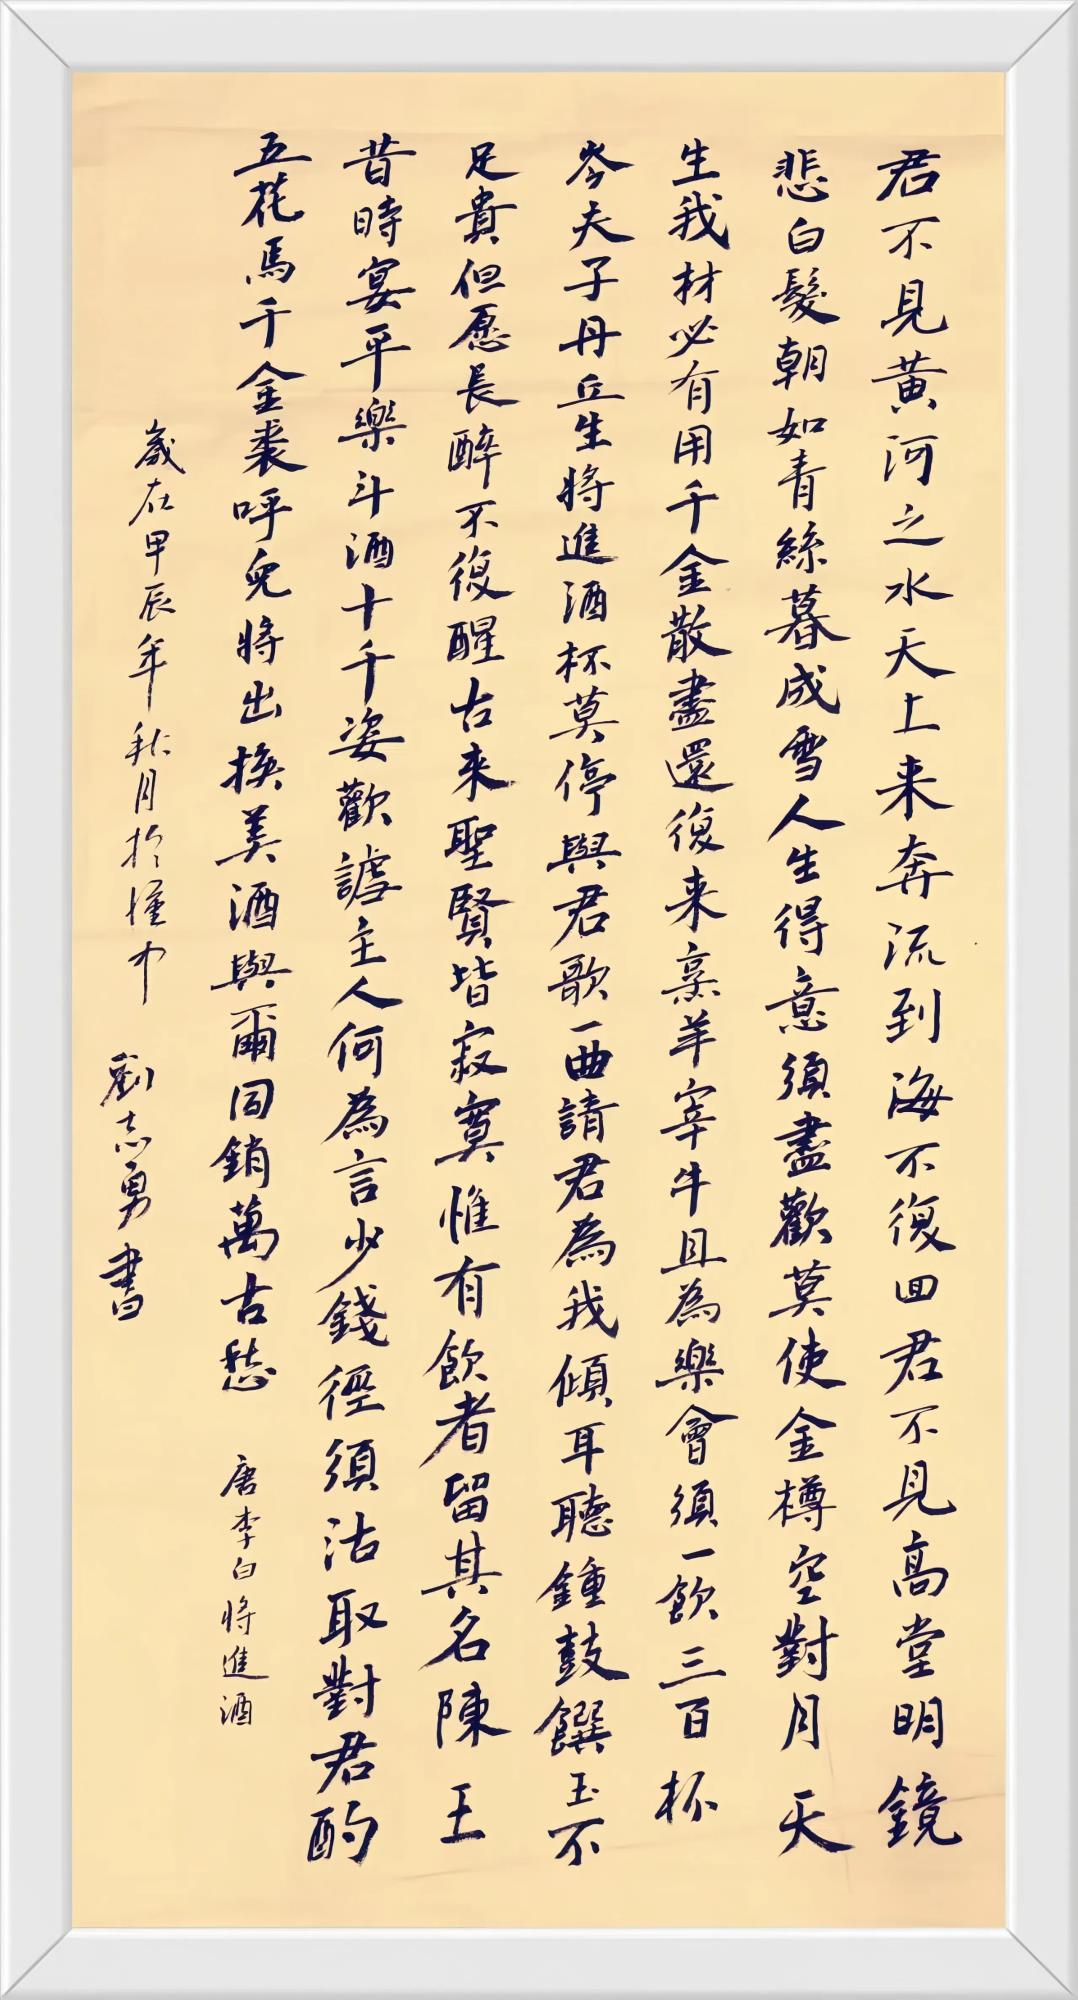 君不見黃河之水天上来奔流到海不復回君不見高堂明鏡
悲白髮朝如青絲暮成雪人生得意須盡歡莫使金樽空對月天
生我材必有用千金散盡還復来烹羊宰牛且為樂會須一飲三百杯
岑夫子丹丘生將進酒杯莫停與君歌一曲請君為我傾耳聽鍾鼓饌玉不
足貴但愿長醉不復醒古来聖賢皆寂寞惟有飲者留其名陳王
昔時宴平樂斗酒十千姿歡謔主人何為言少錢徑須沽取對君酌
五花馬千金裘呼兒將出換美酒與爾同銷萬古愁
唐李白將進酒
歲在甲辰年秋月於漢中
劉志勇書